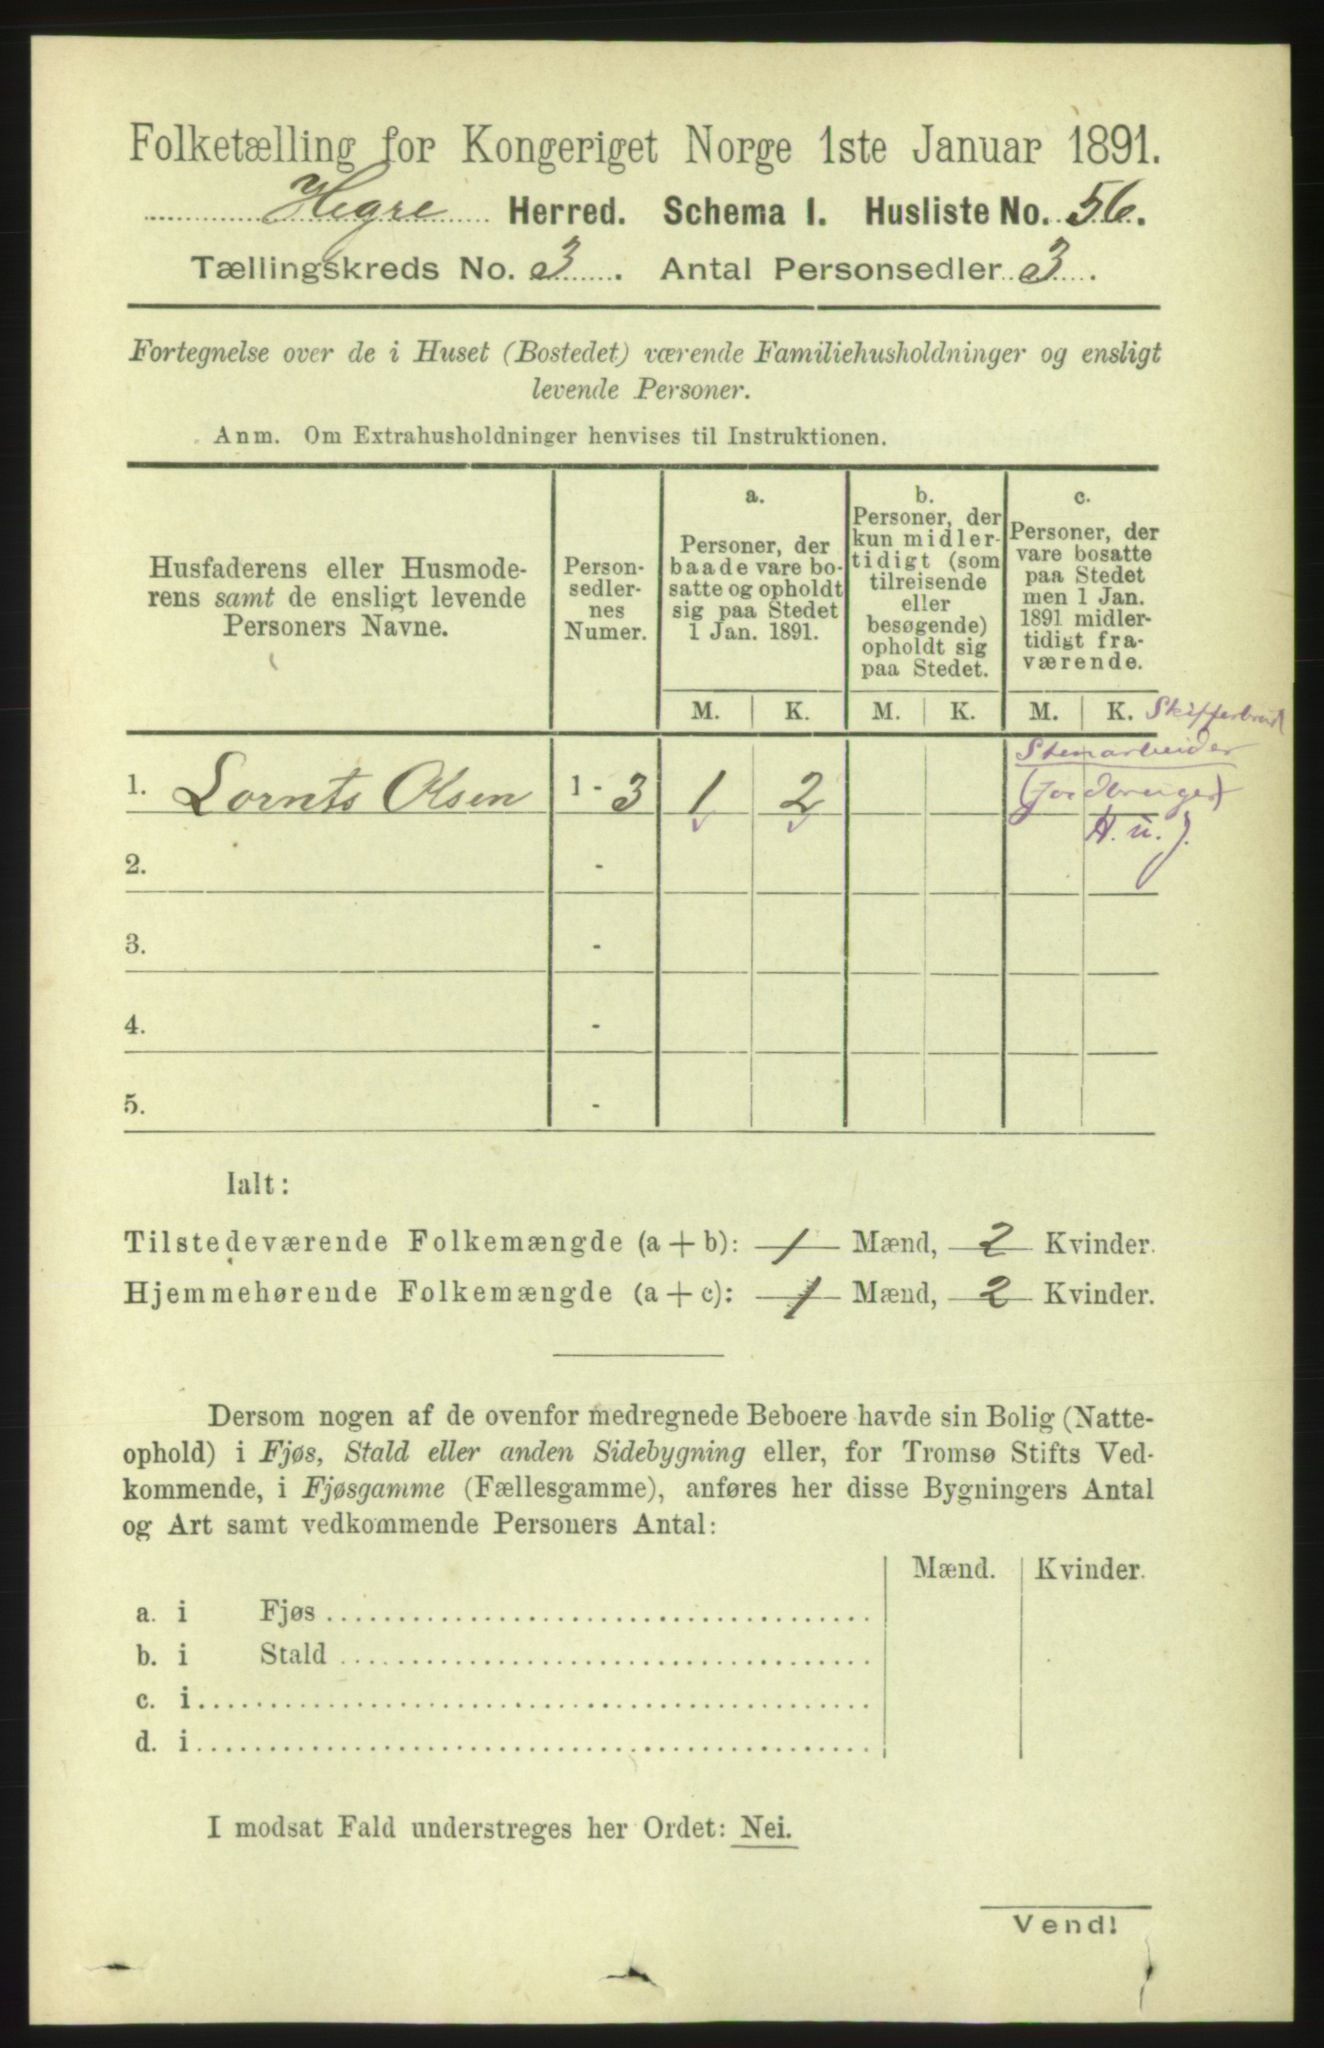 Folketælling for Kongeriget Norge 1ste Januar 1891.
Hegre Herred. Schema I. Husliste No. 56.
Tællingskreds No. 3. Antal Personsedler 3.
Fortegnelse over de i Huset (Bostedet) værende Familiehusholdninger og ensligt
levende Personer.
Anm. Om Extrahusholdninger henvises til Instruktionen.
Husfaderens eller Husmode-
rens samt de ensligt levende
Personers Navne.
Person-
sedler-
nes
Numer.
a.
Personer, der
baade vare bo-
satte og opholdt
sig paa Stedet
1 Jan. 1891.
b.
Personer, der
kun midler-
tidigt (som
tilreisende
eller
besøgende)
opholdt sig
paa Stedet.
c.
Personer, der
vare bosatte
paa Stedet
men 1 Jan.
1891 midler-
tidigt fra-
værende.
M. K. M. K. M. K.
Stenarbeider
1. Lornts Olsen 1 - 3 1 2
(Jordbruger)
H. u.).
2. -
3. -
4. -
5. -
Ialt:
Tilstedeværende Folkemængde (a + b): 1 Mænd, 2 Kvinder.
Hjemmehørende Folkemængde (a + c): 1 Mænd, 2 Kvinder.
Dersom nogen af de ovenfor medregnede Beboere havde sin Bolig (Natte-
ophold) i Fjøs, Stald eller anden Sidebygning eller, for Tromsø Stifts Ved-
kommende, i Fjøsgamme (Fællesgamme), anføres her disse Bygningers Antal
og Art samt vedkommende Personers Antal:
Mænd. Kvinder.
a. i Fjøs
b. i Stald
c. i
d. i
I modsat Fald understreges her Ordet: Nei.
Vend!